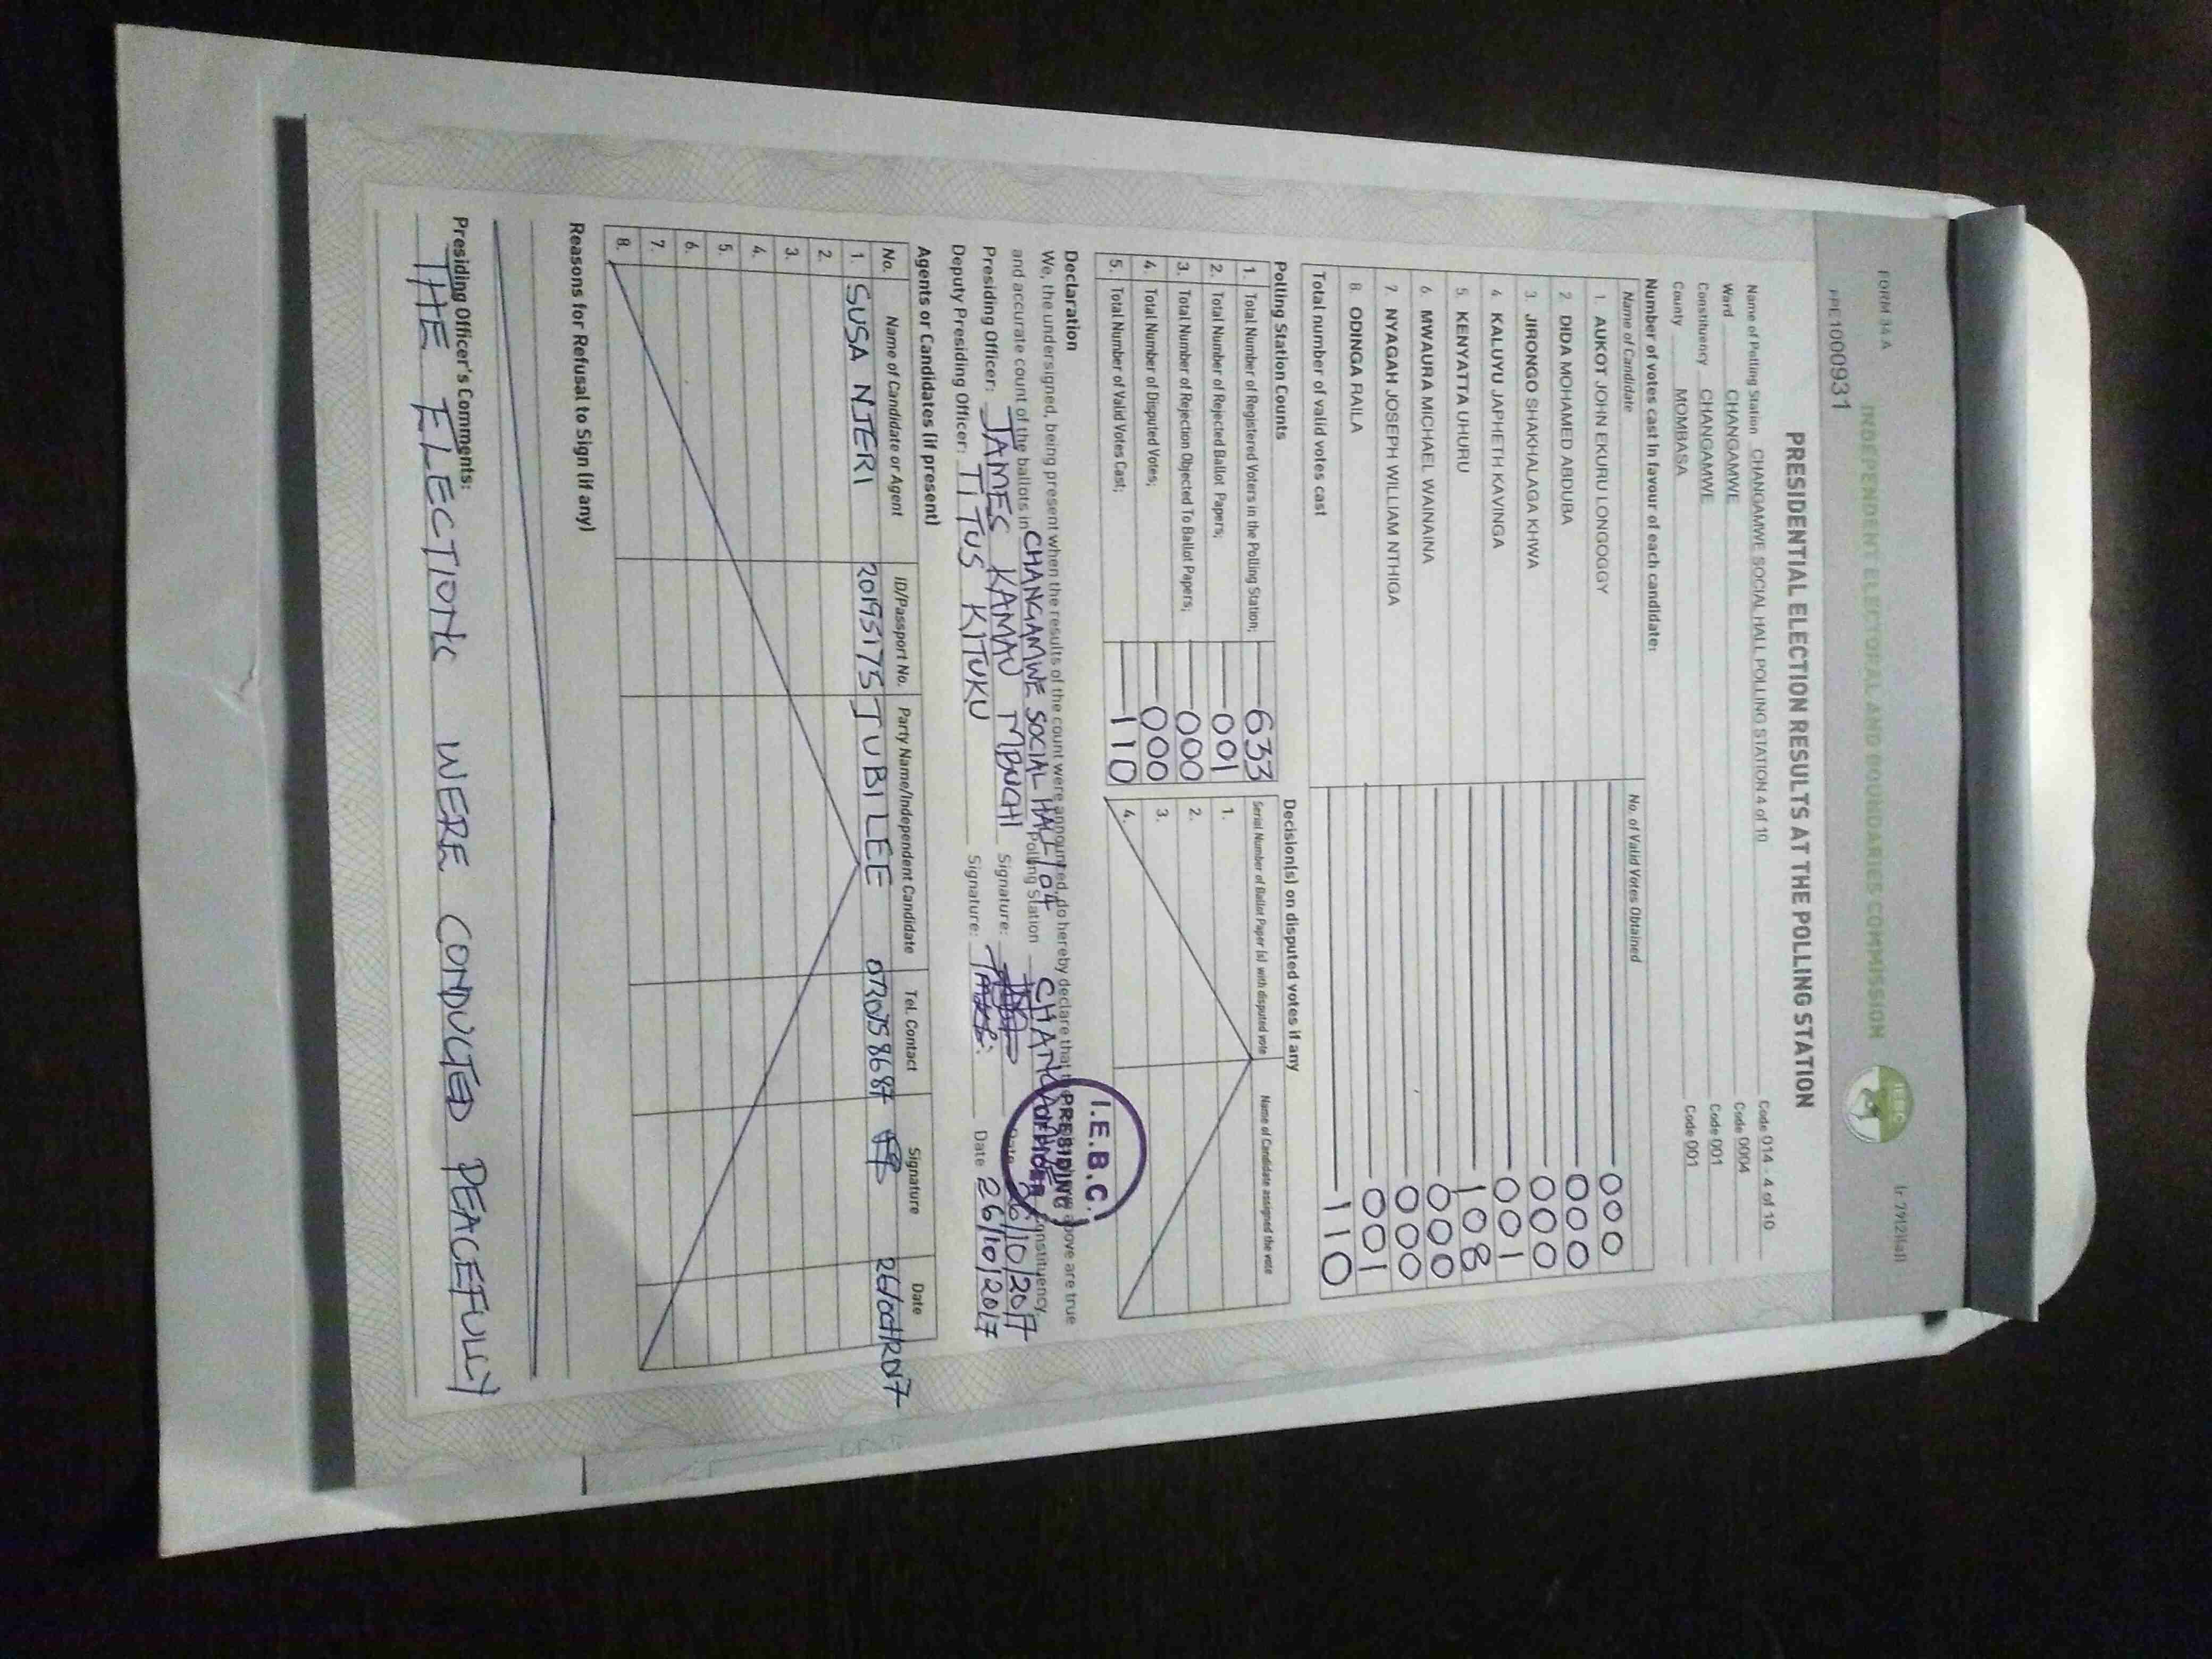 FORM 34A
INDEPENDENT ELECTORAL AND BOUNDARIES COMMISSION
IEBC
(r.79(2)(a))
PRE1000931
PRESIDENTIAL ELECTION RESULTS AT THE POLLING STATION
Name of Polling Station CHANGAMWE SOCIAL HALL POLLING STATION 4 of 10 Code 014 - 4 of 10
Ward CHANGAMWE Code 0004
Constituency CHANGAMWE Code 001
County MOMBASA Code 001
Number of votes cast in favour of each candidate:
Name of Candidate No. of Valid Votes Obtained
1. AUKOT JOHN EKURU LONGOGGY 000
2. DIDA MOHAMED ABDUBA 000
3. JIRONGO SHAKHALAGA KHWA 000
4. KALUYU JAPHETH KAVINGA 001
5. KENYATTA UHURU 108
6. MWAURA MICHAEL WAINAINA 000
7. NYAGAH JOSEPH WILLIAM NTHIGA 000
8. ODINGA RAILA 001
Total number of valid votes cast 110
Polling Station Counts
1. Total Number of Registered Voters in the Polling Station; 633
2. Total Number of Rejected Ballot Papers; 001
3. Total Number of Rejection Objected To Ballot Papers; 000
4. Total Number of Disputed Votes; 000
5. Total Number of Valid Votes Cast; 110
Decision(s) on disputed votes if any
Serial Number of Ballot Paper (s) with disputed vote Name of Candidate assigned the vote
1.
2.
3.
4.
Declaration
We, the undersigned, being present when the results of the count were announced, do hereby declare that the above are true
and accurate count of the ballots in CHANGAMWE SOCIAL HALL/04 Polling Station CHANGAMWE Constituency.
Presiding Officer: JAMES KAMAU MBUCHI Signature: Date 26/10/2017
Deputy Presiding Officer: TITUS KITUKU Signature: Date 26/10/2017
I.E.B.C.
PRESIDING
OFFICER
Agents or Candidates (if present)
No. Name of Candidate or Agent ID/Passport No. Party Name/Independent Candidate Tel. Contact Signature Date
1. SUSA NJERI 20195175 JUBILEE 0720758687 26/oct/2017
2.
3.
4.
5.
6.
7.
8.
Reasons for Refusal to Sign (if any)
Presiding Officer's Comments:
THE ELECTIONC WERE CONDUCTED PEACEFULLY